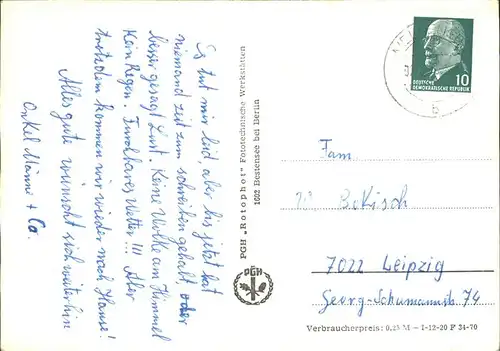 Es tut mir leid, aber bis jetzt hat
niemand zeit zum schreiben gehabt, oder
besser gesagt Lust. Keine Wolke am Himmel
Kein Regen. Furchbares Wetter!!! Aber
trotzdem kommen wir wieder nach Hause!
Alles gute wünscht sich weiterhin
Onkel Männe + Co.
PGH „Rotophot" Fototechnische Werkstätten
1602 Bestensee bei Berlin
PGH
10
DEUTSCHE
DEMOKRATISCHE REPUBLIK
Fam.
W. Bokisch
7022 Leipzig
Georg-Schumannstr. 74
Verbraucherpreis: 0,25 M – 1-12-20 F 34-70